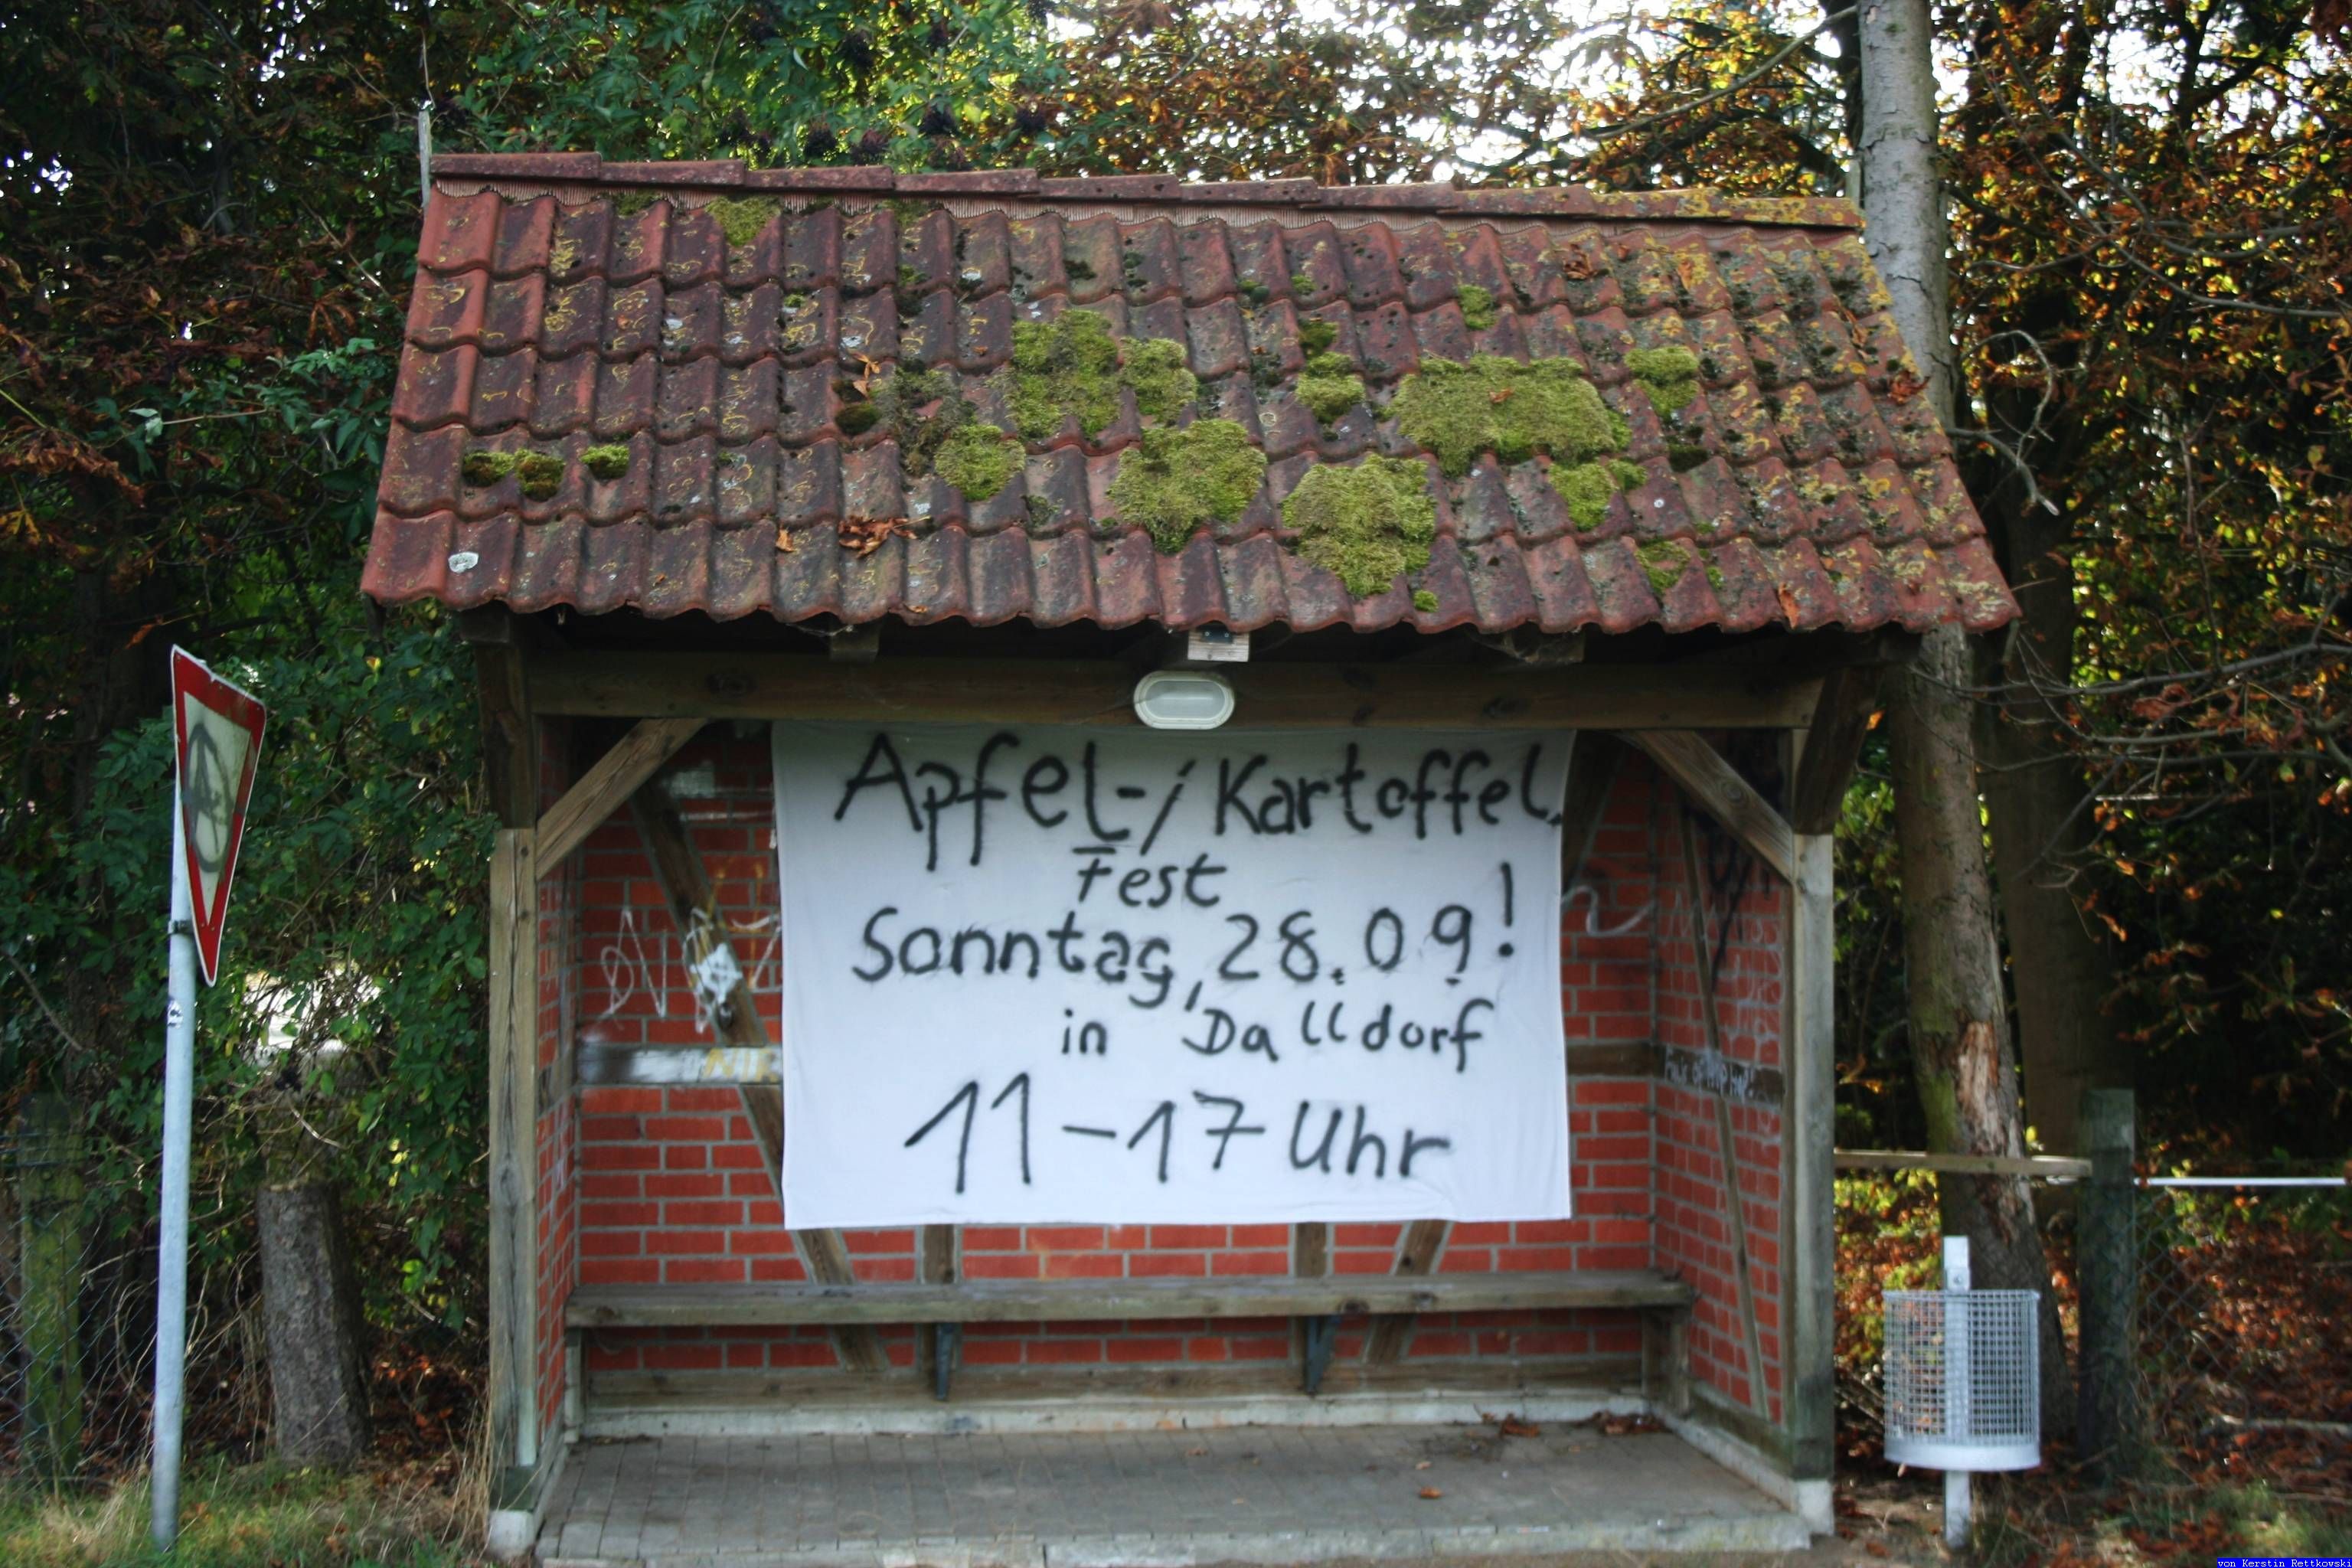 Apfel-/Kartoffel,
Fest
Sonntag, 28.09!
in Dalldorf
11-17 Uhr
von Kerstin Rettkowski